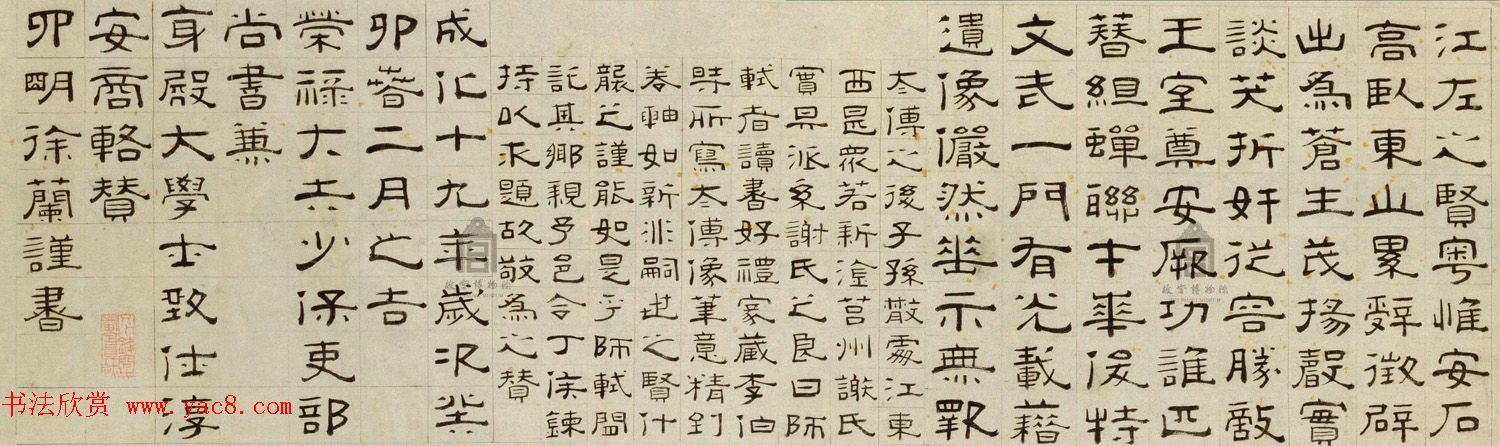 江左之賢粵惟安石
高臥東山累辭徵辟
出為蒼生茂揚聲實
談笑折奸從容勝敵
王室尊安厥功誰匹
簪組蟬聯才華俊特
文武一門有光載籍
遺像儼然垂示無斁
太傅之後子孫散處江東
西是眾若新淦莒州謝氏
實其派系謝氏之良曰師
軾者讀書好禮家藏李伯
時所寫太傅像筆意精到
卷軸如新非嗣世之賢什
襲之謹能如是乎師軾
託其鄉親予邑令丁侯鍊
持以求題故敬為之贊
成化十九年歲次癸
卯春二月之吉
榮祿大夫少保吏部
尚書兼
身殿大學士致仕淳
安商輅贊
明徐蘭謹書
故宫博物院
故宫博物院
书法欣赏 www.yac8.com